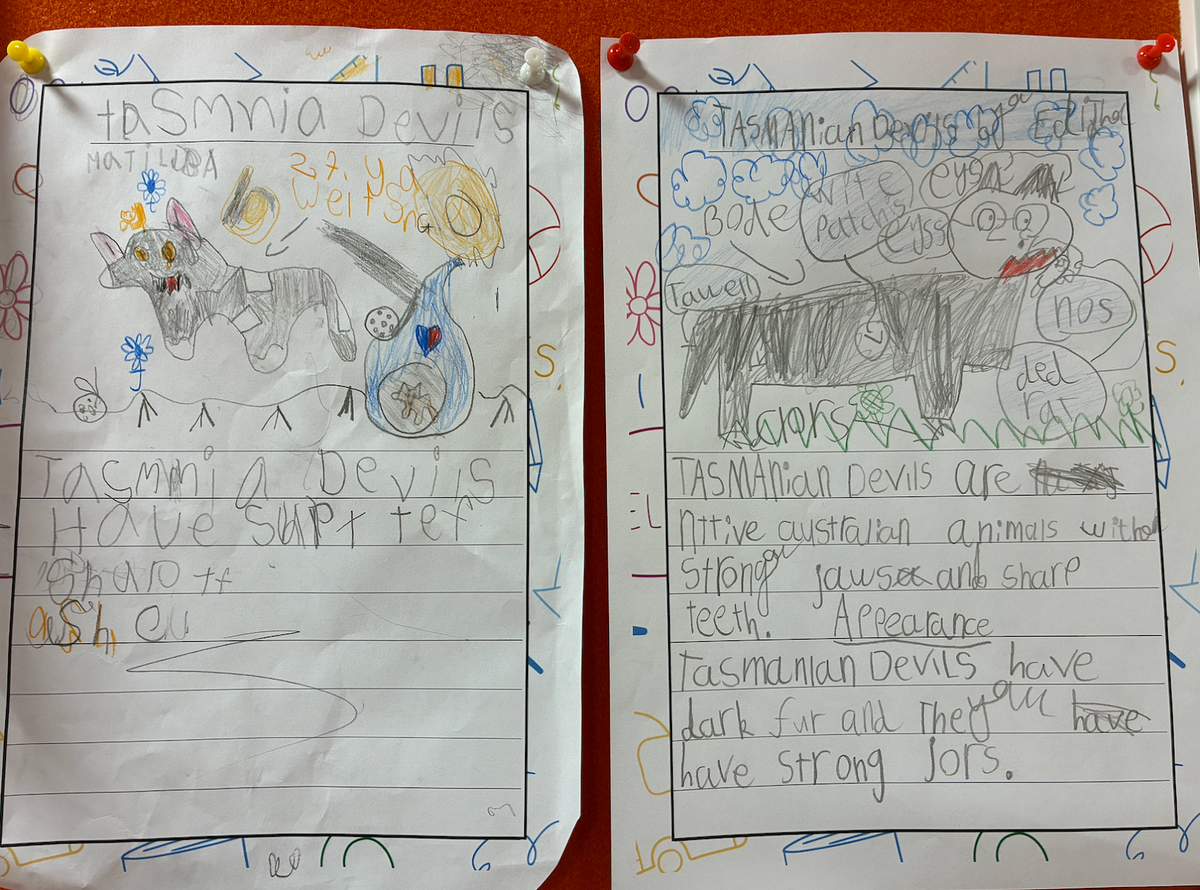 taSMnia DeViLs
MATILDA
27. yg
Weit
TaSMnia DeViLs
Have SUPr
Sharp
TASMANian DeviLs by Edith
wite
patchs
eyss
Bode
nos
ded
rat
TASMANian DeviLs are
nttive australian animals with
strong jaws and sharp
teeth. Appearance
Tasmanian DeviLS have
dark fur and They all have
have strong Jors.